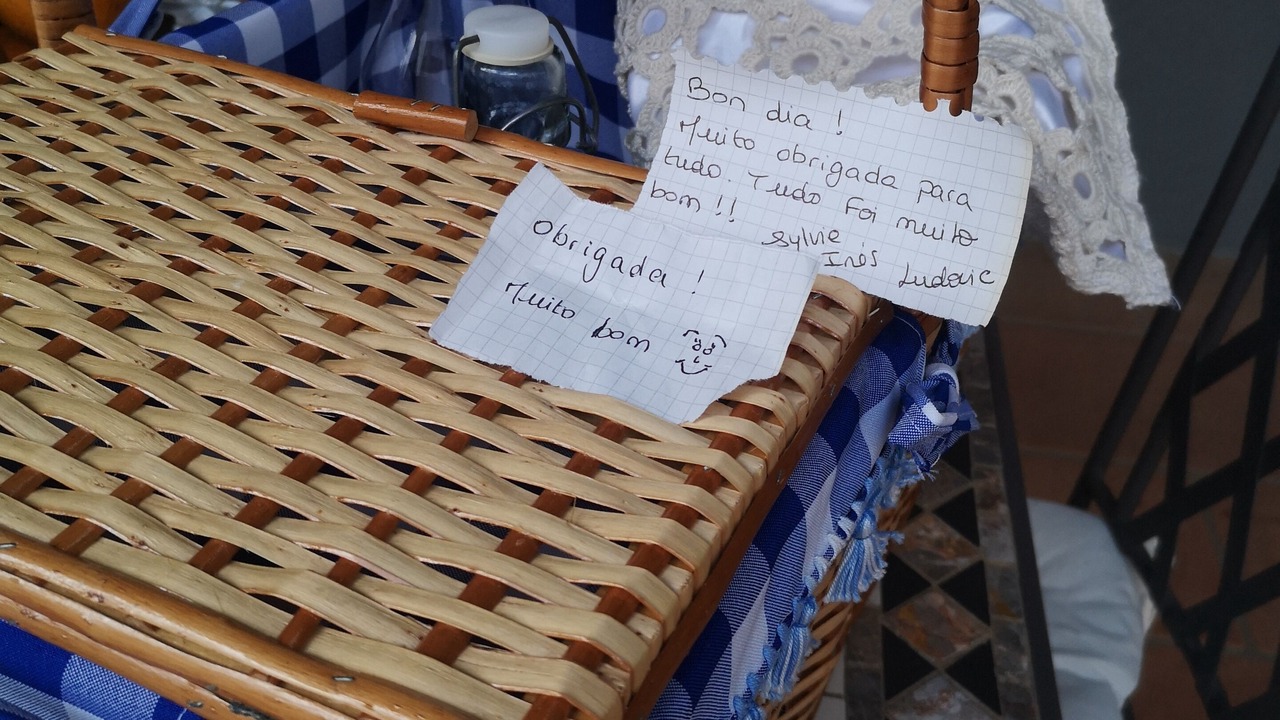 Bon dia !
Muito obrigada para
tudo. Tudo foi muito
bom !!
Sylvie
Inês Ludovic
Obrigada !
Muito bom